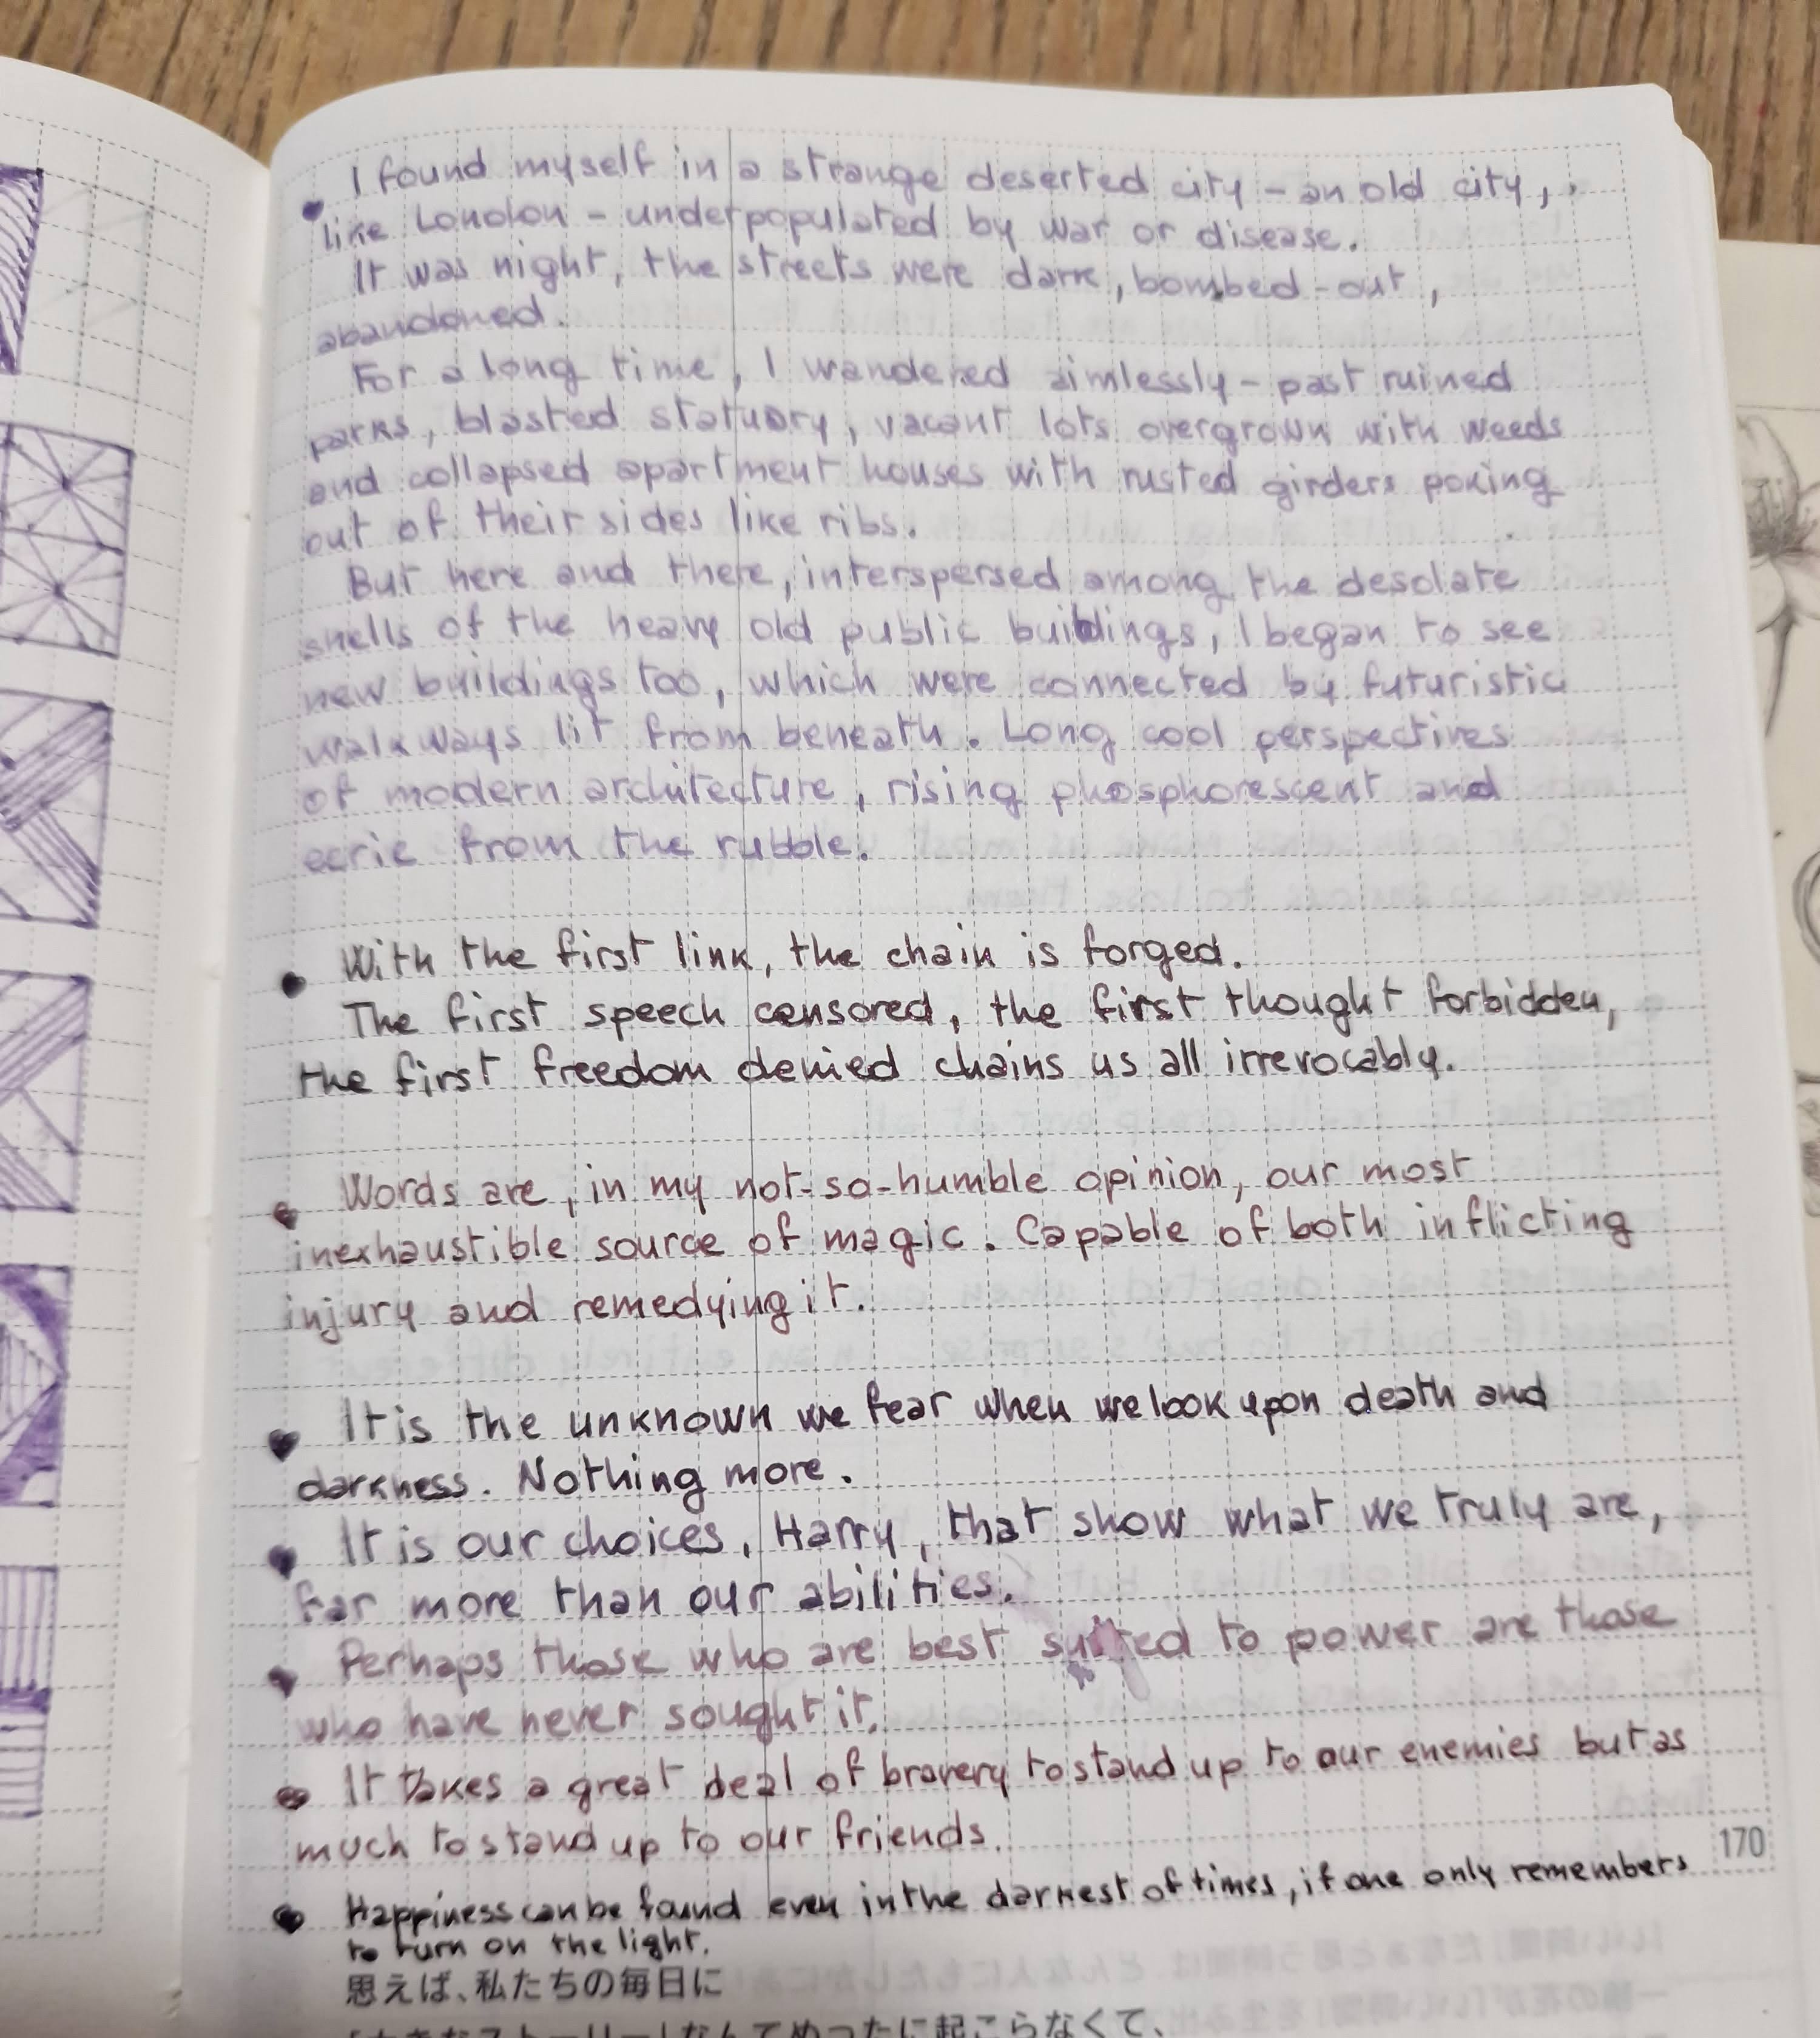 I found myself in a strange deserted city - an old city,
like London - underpopulated by war or disease.
It was night, the streets were dark, bombed-out,
abandoned.
For a long time, I wandered aimlessly - past ruined
parks, blasted statuary, vacant lots overgrown with weeds
and collapsed apartment houses with rusted girders poking
out of their sides like ribs.
But here and there, interspersed among the desolate
shells of the heavy old public buildings, I began to see
new buildings too, which were connected by futuristic
walkways lit from beneath. Long cool perspectives
of modern architecture, rising phosphorescent and
eerie from the rubble.
With the first link, the chain is forged.
The first speech censored, the first thought forbidden,
the first freedom denied chains us all irrevocably.
Words are, in my not-so-humble opinion, our most
inexhaustible source of magic. Capable of both inflicting
injury and remedying it.
It is the unknown we fear when we look upon death and
darkness. Nothing more.
It is our choices, Harry, that show what we truly are,
far more than our abilities.
Perhaps those who are best suited to power are those
who have never sought it.
It takes a great deal of bravery to stand up to our enemies but as
much to stand up to our friends.
170
Happiness can be found even in the darkest of times, if one only remembers
to turn on the light.
思えば、私たちの毎日に
「大きなストーリー」なんてめったに起こらなくて、